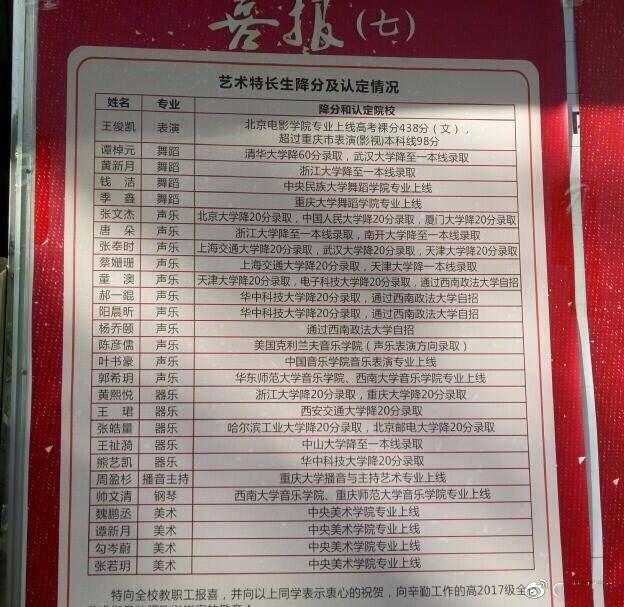 喜报(七)
艺术特长生降分及认定情况
姓名 专业 降分和认定院校
王俊凯 表演 北京电影学院专业上线高考裸分438分（文），
超过重庆市表演(影视)本科线98分
谭棹元 舞蹈 清华大学降60分录取，武汉大学降至一本线录取
黄新月 舞蹈 浙江大学降至一本线录取
钱洁 舞蹈 中央民族大学舞蹈学院专业上线
季鑫 舞蹈 重庆大学舞蹈学院专业上线
张文杰 声乐 北京大学降20分录取，中国人民大学降20分录取，厦门大学降20分录取
唐朵 声乐 浙江大学降至一本线录取，南开大学降至一本线录取
张奉时 声乐 上海交通大学降20分录取，武汉大学降20分录取，天津大学降20分录取
蔡姗珊 声乐 上海交通大学降20分录取，天津大学降一本线录取
童澳 声乐 天津大学降20分录取，电子科技大学降20分录取，通过西南政法大学自招
郝一錕 声乐 华中科技大学降20分录取，通过西南政法大学自招
阳晨昕 声乐 华中科技大学降20分录取，通过西南政法大学自招
杨乔颐 声乐 通过西南政法大学自招
陈彦儒 声乐 美国克利兰夫音乐学院（声乐表演方向录取）
叶书豪 声乐 中国音乐学院音乐表演专业上线
郭希玥 声乐 华东师范大学音乐学院、西南大学音乐学院专业上线
黄熙悦 器乐 浙江大学降20分录取，重庆大学降20分录取
王珺 器乐 西安交通大学降20分录取
张皓量 器乐 哈尔滨工业大学降20分录取，北京邮电大学降20分录取
王祉漪 器乐 中山大学降至一本线录取
熊艺凯 器乐 华中科技大学降20分录取
周盈杉 播音主持 重庆大学播音与主持艺术专业上线
帅文清 钢琴 西南大学音乐学院、重庆师范大学音乐学院专业上线
魏鹏丞 美术 中央美术学院专业上线
谭新月 美术 中央美术学院专业上线
勾岑蔚 美术 中央美术学院专业上线
张若玥 美术 中央美术学院专业上线
特向全校教职工报喜，并向以上同学表示衷心的祝贺，向辛勤工作的高2017级全